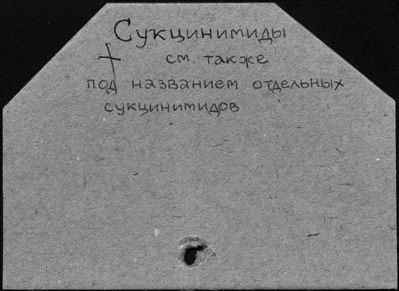 Сукцинимиды
см. также
под названием отдельных
сукцинимидов